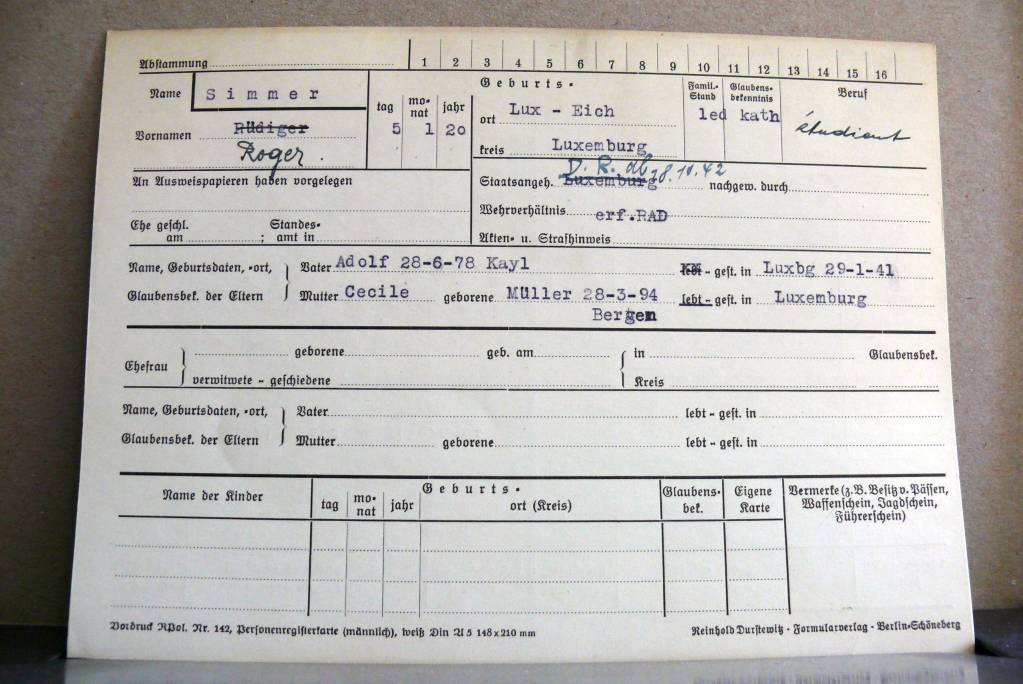 Abstammung 1 2 3 4 5 6 7 8 9 10 11 12 13 14 15 16
Name Simmer
tag monat jahr
Geburts-
Famil.-Stand Glaubensbekenntnis Beruf
5 1 20 ort Lux - Eich led kath étudiant
Vornamen Rüdiger
Roger.
kreis Luxemburg
D. R. ab 28.10.42
An Ausweispapieren haben vorgelegen
Staatsangeh. Luxemburg nachgew. durch
Wehrverhältnis erf.RAD
Ehe geschl. Standes-
am ; amt in
Akten- u. Strafhinweis
Name, Geburtsdaten, -ort, Vater Adolf 28-6-78 Kayl - gest. in Luxbg 29-1-41
Glaubensbek. der Eltern Mutter Cecile geborene Müller 28-3-94 lebt - gest. in Luxemburg
Bergem
Ehefrau geborene geb. am in Glaubensbek.
verwitwete - geschiedene Kreis
Name, Geburtsdaten, -ort, Vater lebt - gest. in
Glaubensbek. der Eltern Mutter geborene lebt - gest. in
Name der Kinder
Geburts-
tag monat jahr ort (Kreis)
Glaubensbek.
Eigene Karte
Vermerke (z.B. Besitz v. Pässen,
Waffenschein, Jagdschein,
Führerschein)
Vordruck RPol. Nr. 142, Personenregisterkarte (männlich), weiß Din A 5 148 x 210 mm
Reinhold Durstewitz · Formularverlag · Berlin-Schöneberg